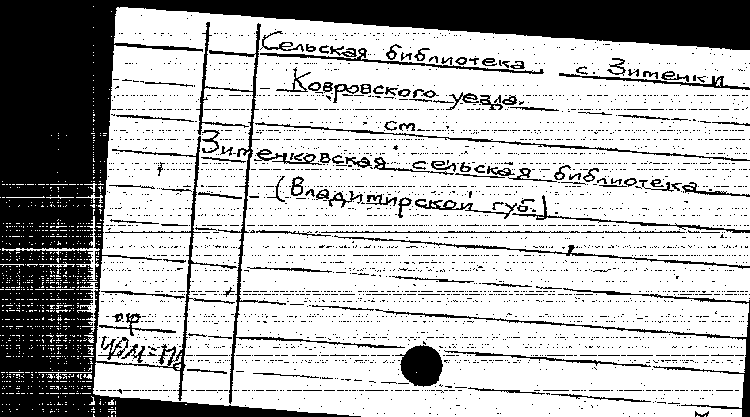 Сельская библиотека, с Зименки
Ковровского уезда.
см.
Зименковская сельская библиотека
(Владимирской губ.).